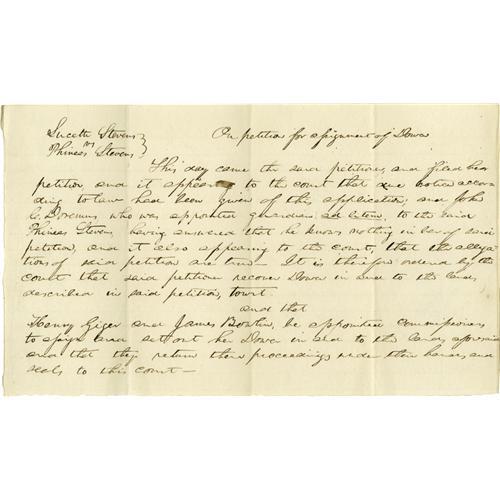 Suceth Stevens
vs
Phineas Stevens } On petition for assignment of Dower
This day came the said petitioner, and filed her
petition and it appearing to the court that due notice accor
ding to law had been given of this application, and John
C. Doremus who was appointed guardian ad litem, to the said
Phineas Stevens having answered that he knows nothing in bar of said
petition, and it also appearing to the court, that the allega
tions of said petition are true — It is therefore ordered by the
court that said petitioner recover Dower in and to the lands,
described in said petition, towit.
and that
Henry Giger and James Bowlin, be appointed commissioners
to assign and set out her Dower in and to the lands aforesaid
and that they return their proceedings under their hands and
seals to this court —